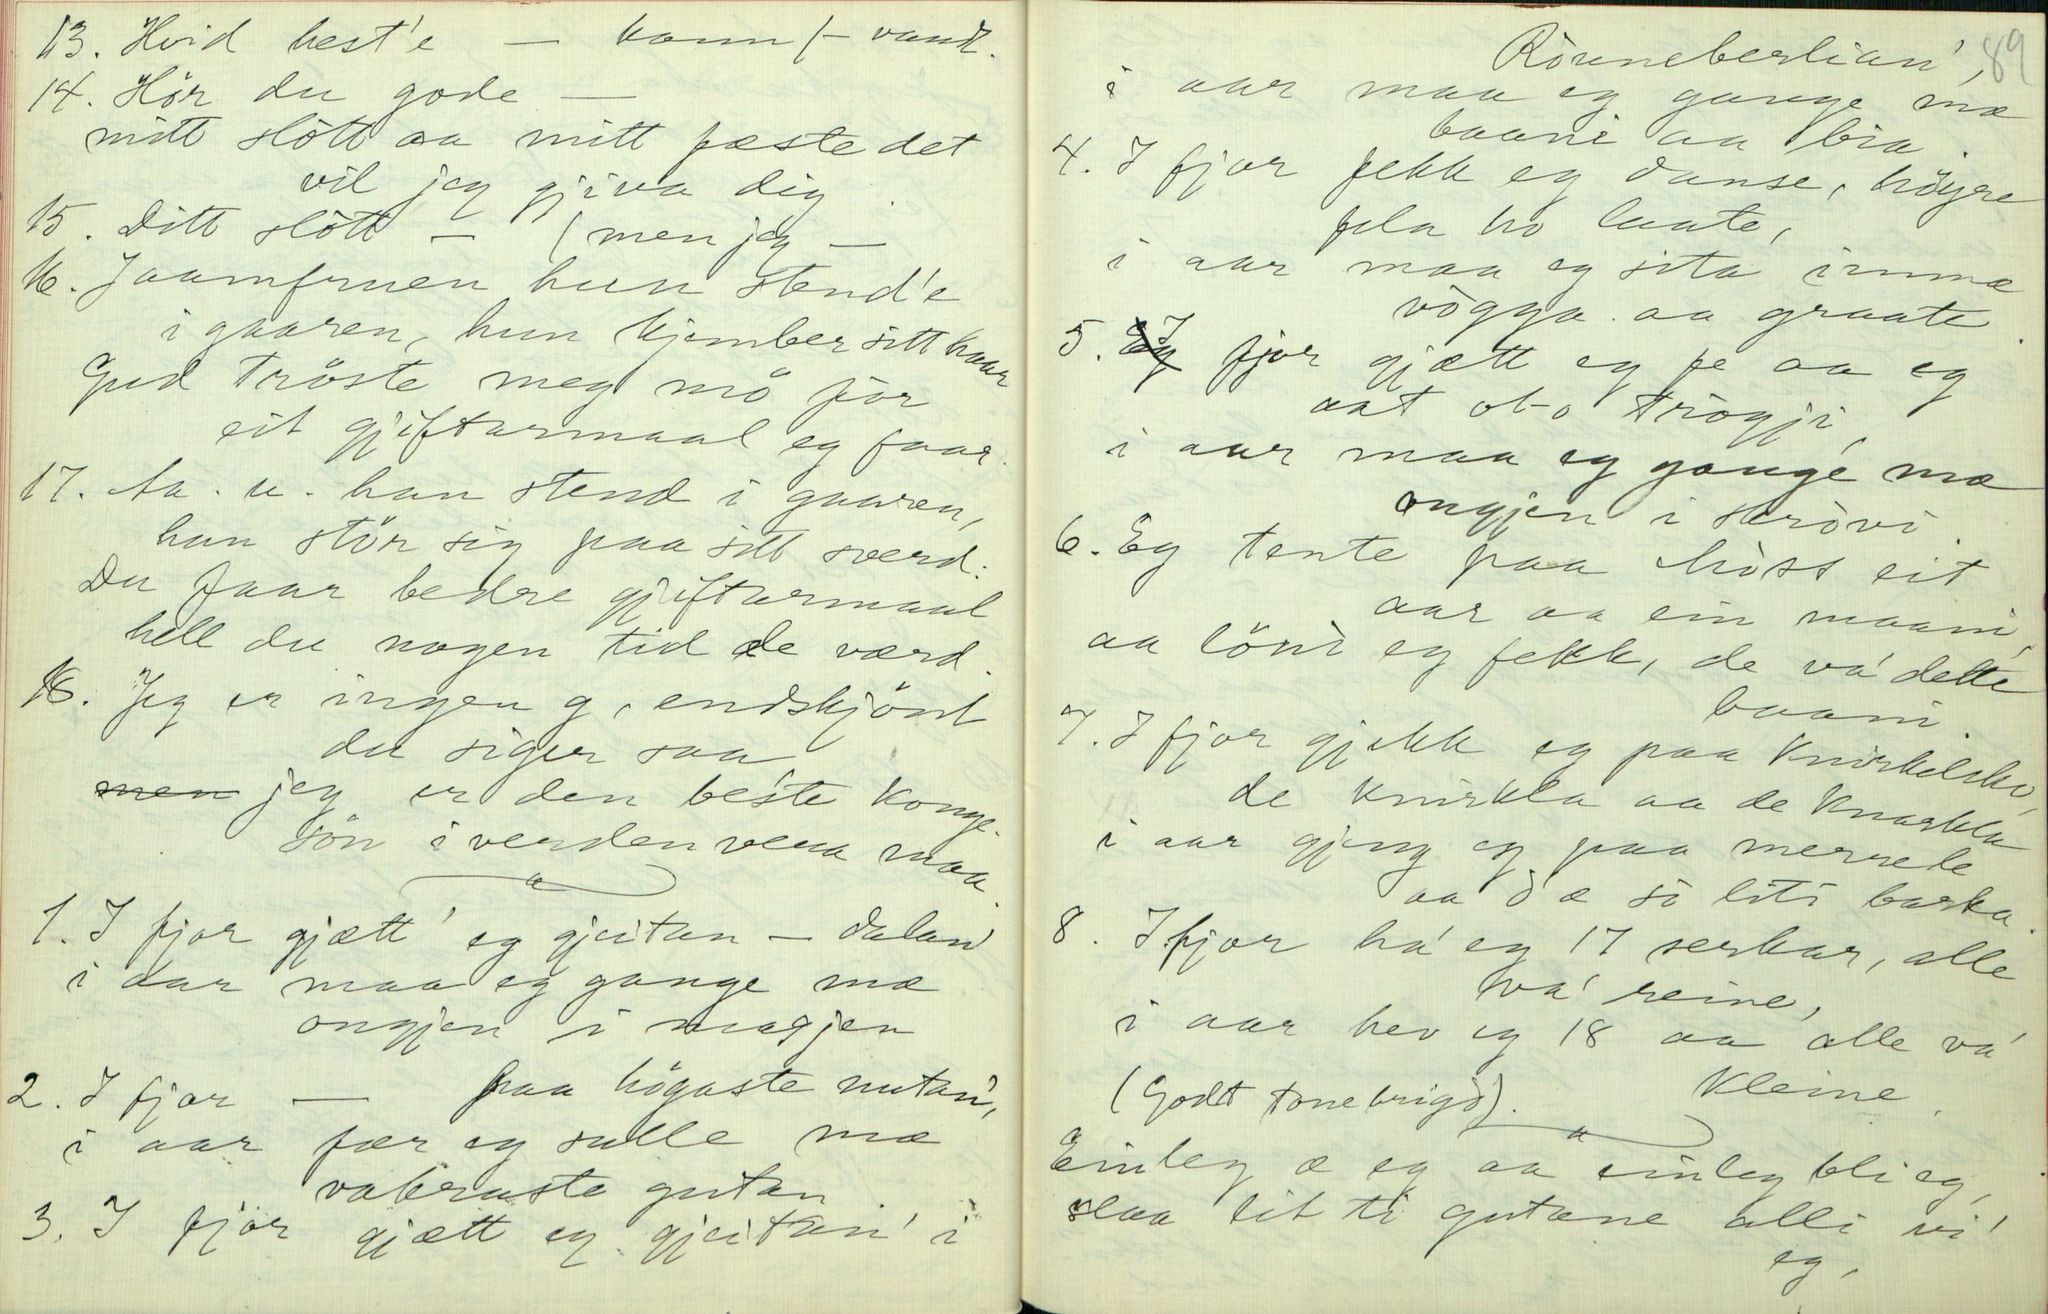 13. Hvid hest'e — kann /– vand.
14. Hör du gode —
mitt slött aa mitt fæste det
vil jeg gjiva dig.
15. Ditt slött — / men jeg —
16. Jaamfruen hun stend'e
i gaaren, hun kjember sitt haar
Gud tröste meg mö for
eit gjiftarmaal eg faar.
17. Aa. u. han stend i gaaren,
han stör sig paa sitt sverd.
Du faar bedre gjiftarmaal
hell du nogen tid de værd.
18. Jeg er ingen g, endskjönt
du siger saa
jeg er den beste konge-
sön i verden vera maa.
1. I fjor gjætt' eg gjeitan — dalan'
i aar maa eg gange mæ
ongjen i magjen
2. I fjor — paa högaste nutan',
i aar fær eg sulle mæ
vakraste gutan
3. I fjor gjætt eg gjeitan' i
89
Rönneberlian',
i aar maa eg gange mæ
baani aa bia.
4. I fjor fekk eg danse, höyre
fela ho laate,
i aar maa eg sita imma
vögga aa graate
5. I fjor gjætt eg fe aa eg
aat or trögji,
i aar maa eg gange mæ
ongjen i skrövi.
6. Eg tente paa Moss eit
aar aa ein maani,
aa löni eg fekk, de va' dette
baani.
7. I fjor gjekk eg paa knirkelsko,
de knirkla aa de knarkla
i aar gjeng eg paa
aa d æ so liti barka.
8. I fjor ha' eg 17 serkar, alle
va' reine,
i aar hev eg 18 aa alle va'
kleine.
(Godt tonebrigd).
Einleg æ eg aa einleg bli eg,
slaa lit ti gutane alli vi'
eg,